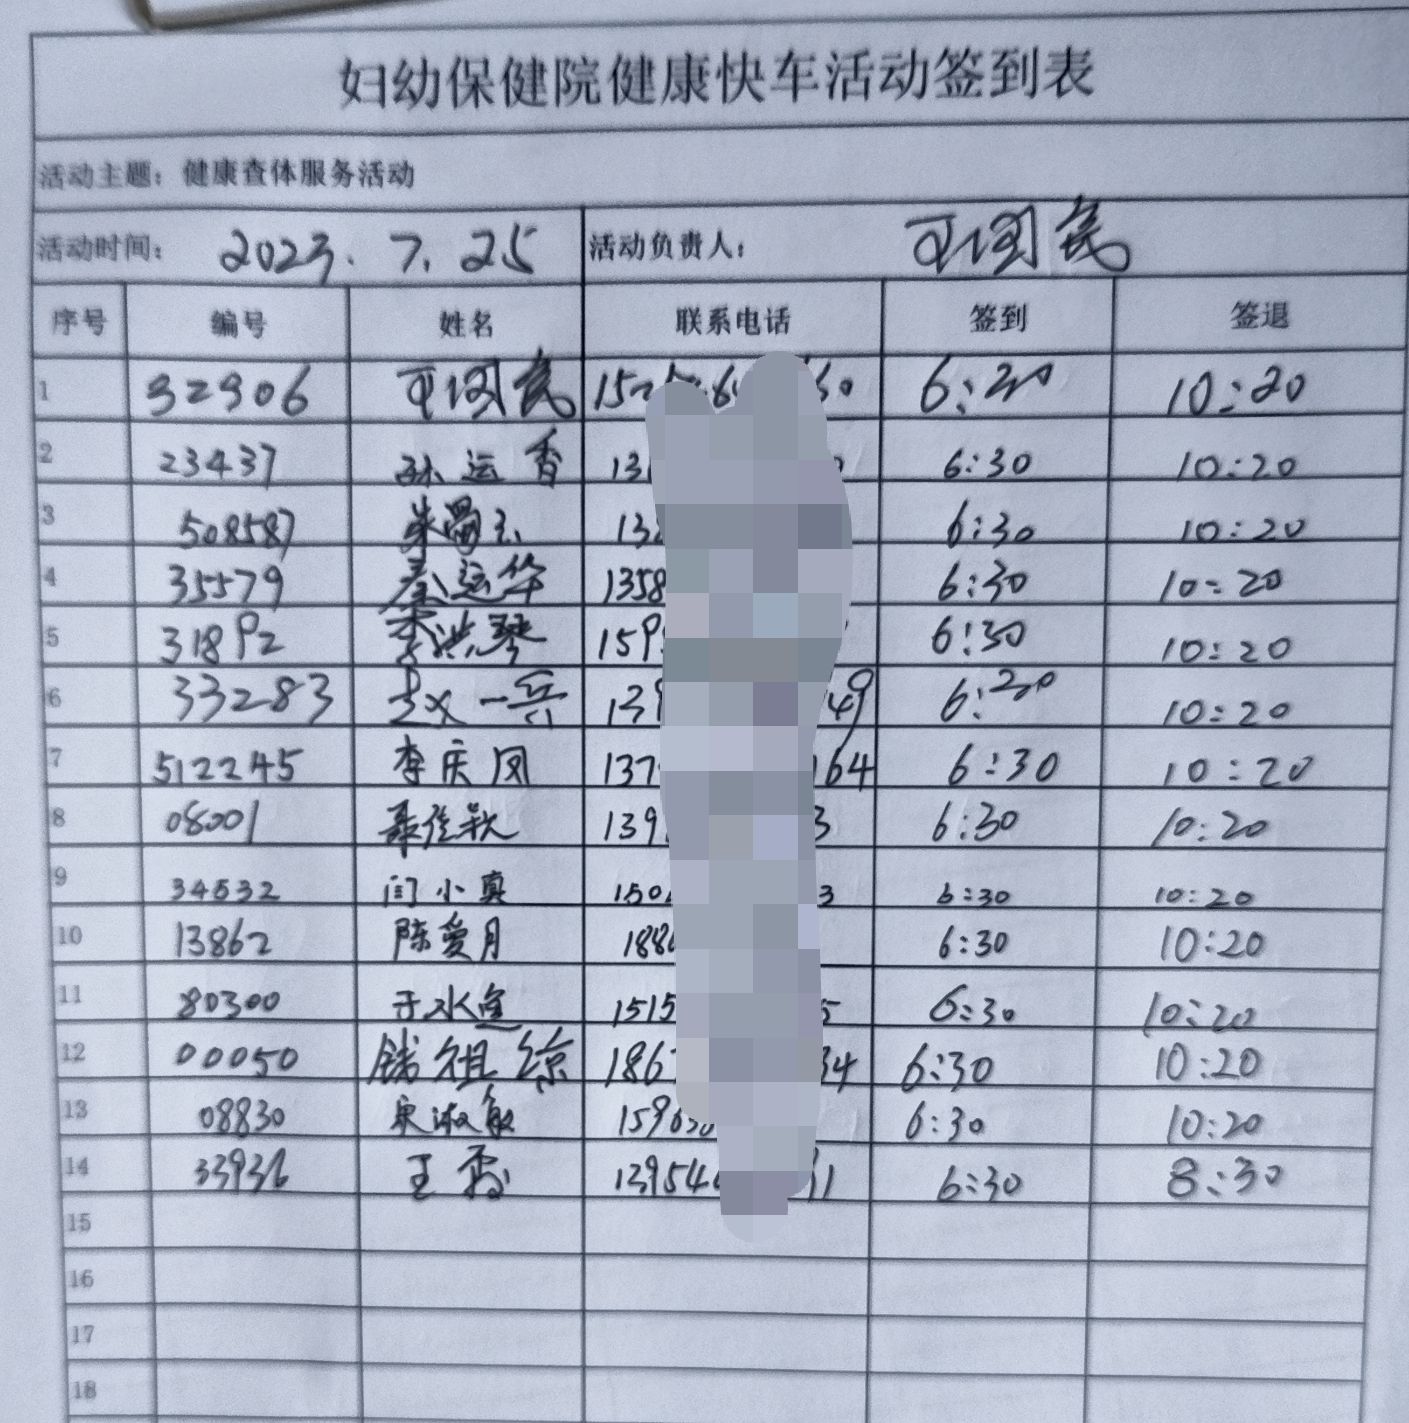 妇幼保健院健康快车活动签到表
活动主题：健康查体服务活动
活动时间： 2023.7.25 活动负责人：
序号 编号 姓名 联系电话 签到 签退
1 32906 6:30 10:20
2 23437 孙运香 6:30 10:20
3 508587 6:30 10:20
4 35579 秦运华 1358 6:30 10:20
5 31892 159 6:30 10:20
6 33283 赵一兵 139 49 6:30 10:20
7 512245 李庆凤 137 164 6:30 10:20
8 08001 139 3 6:30 10:20
9 34532 闫小真 150 3 6:30 10:20
10 13862 陈爱月 188 6:30 10:20
11 80300 于水 1515 5 6:30 10:20
12 00050 钱祖琼 186 34 6:30 10:20
13 08830 宋淑敏 15963 6:30 10:20
14 33936 王霞 13954 91 6:30 8:30
15
16
17
18